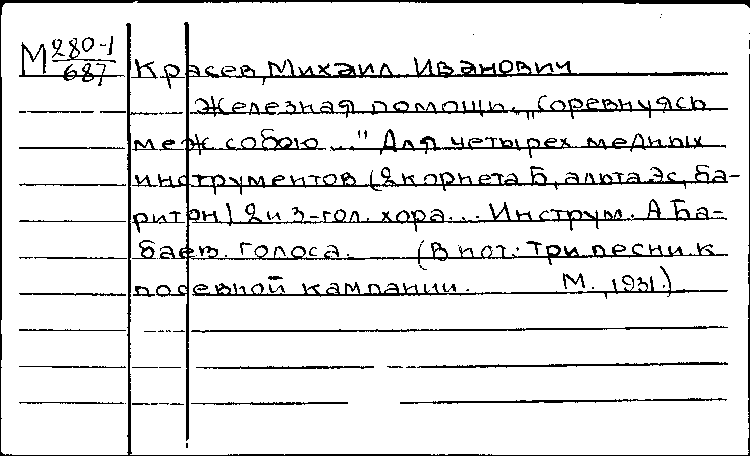 М 280-1
687
Красев, Михаил Иванович
Железная помощь. „Соревнуясь
меж собою..." Для четырех медных
инструментов (2 корнета Б, альта Эс, ба-
ритон) 2 и 3-гол. хора... Инструм. А Ба-
баев. Голоса. (В нот: Три песни к
посевной кампании. М., 1931.)